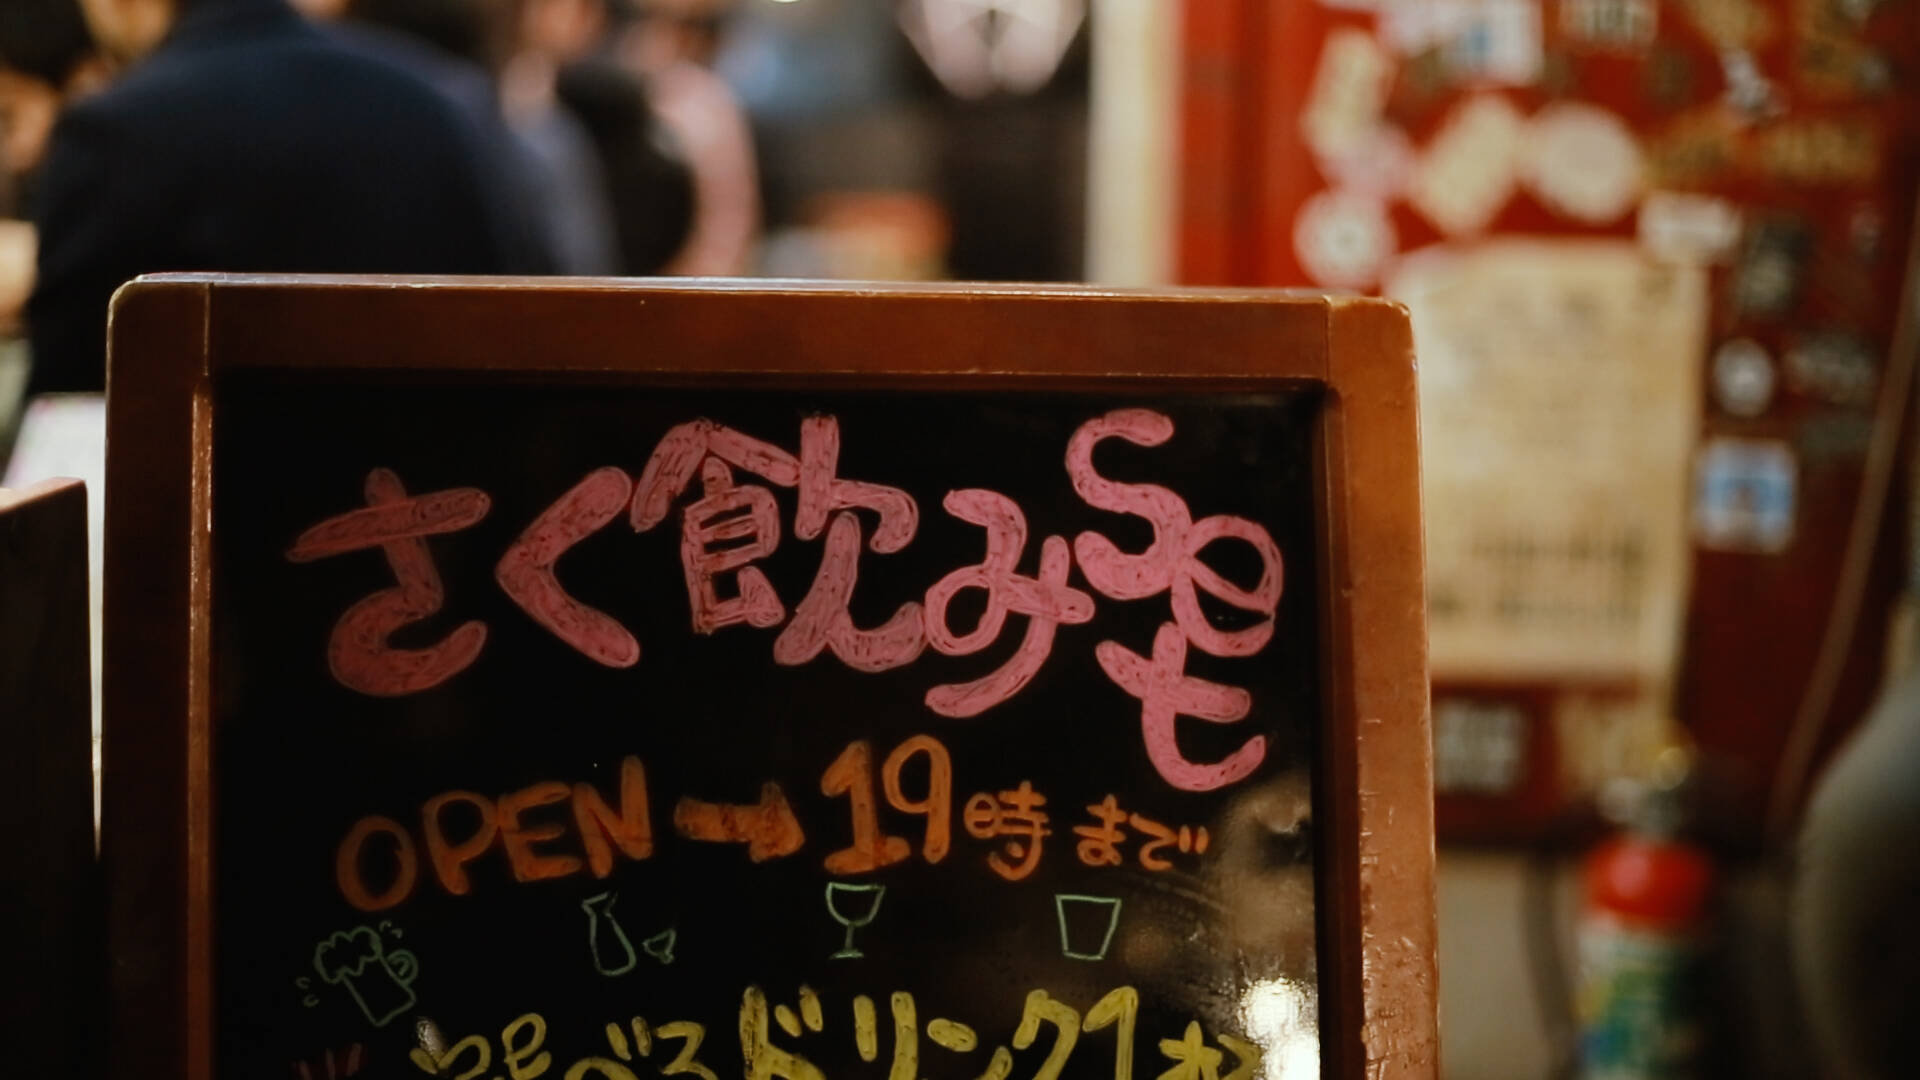 さく飲みset
OPEN→19時まで
選べるドリンク1